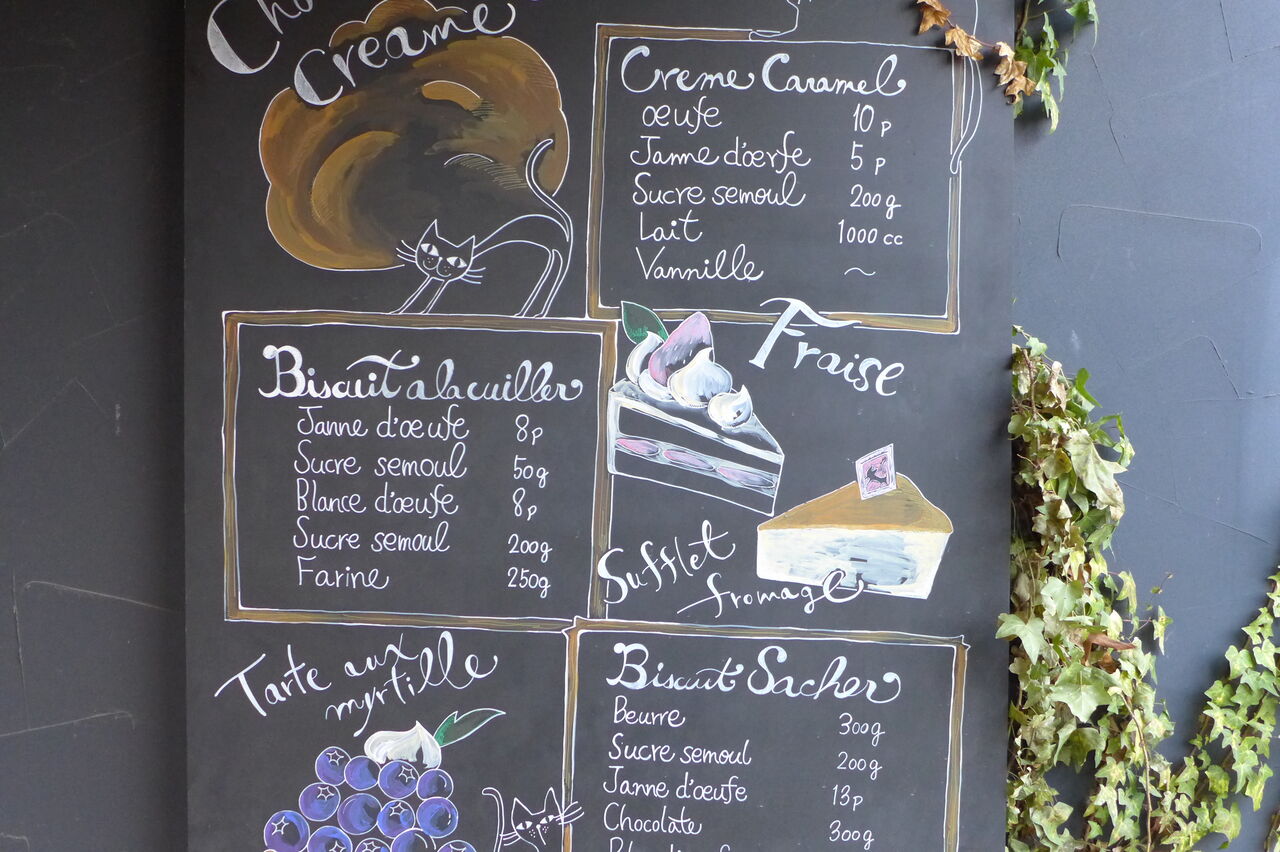 Creame
Creme Caramel
œufe 10 p
Janne d'œrfe 5 p
Sucre semoul 200 g
Lait 1000 cc
Vannille ~
Fraise
Biscuit a la cuiller
Janne d'œufe 8p
Sucre semoul 50g
Blance d'œufe 8p
Sucre semoul 200g
Farine 250g
Sufflet
fromage
Tarte aux
myrtille
Biscuit Sacher
Beurre 300g
Sucre semoul 200g
Janne d'œufe 13p
Chocolate 300g